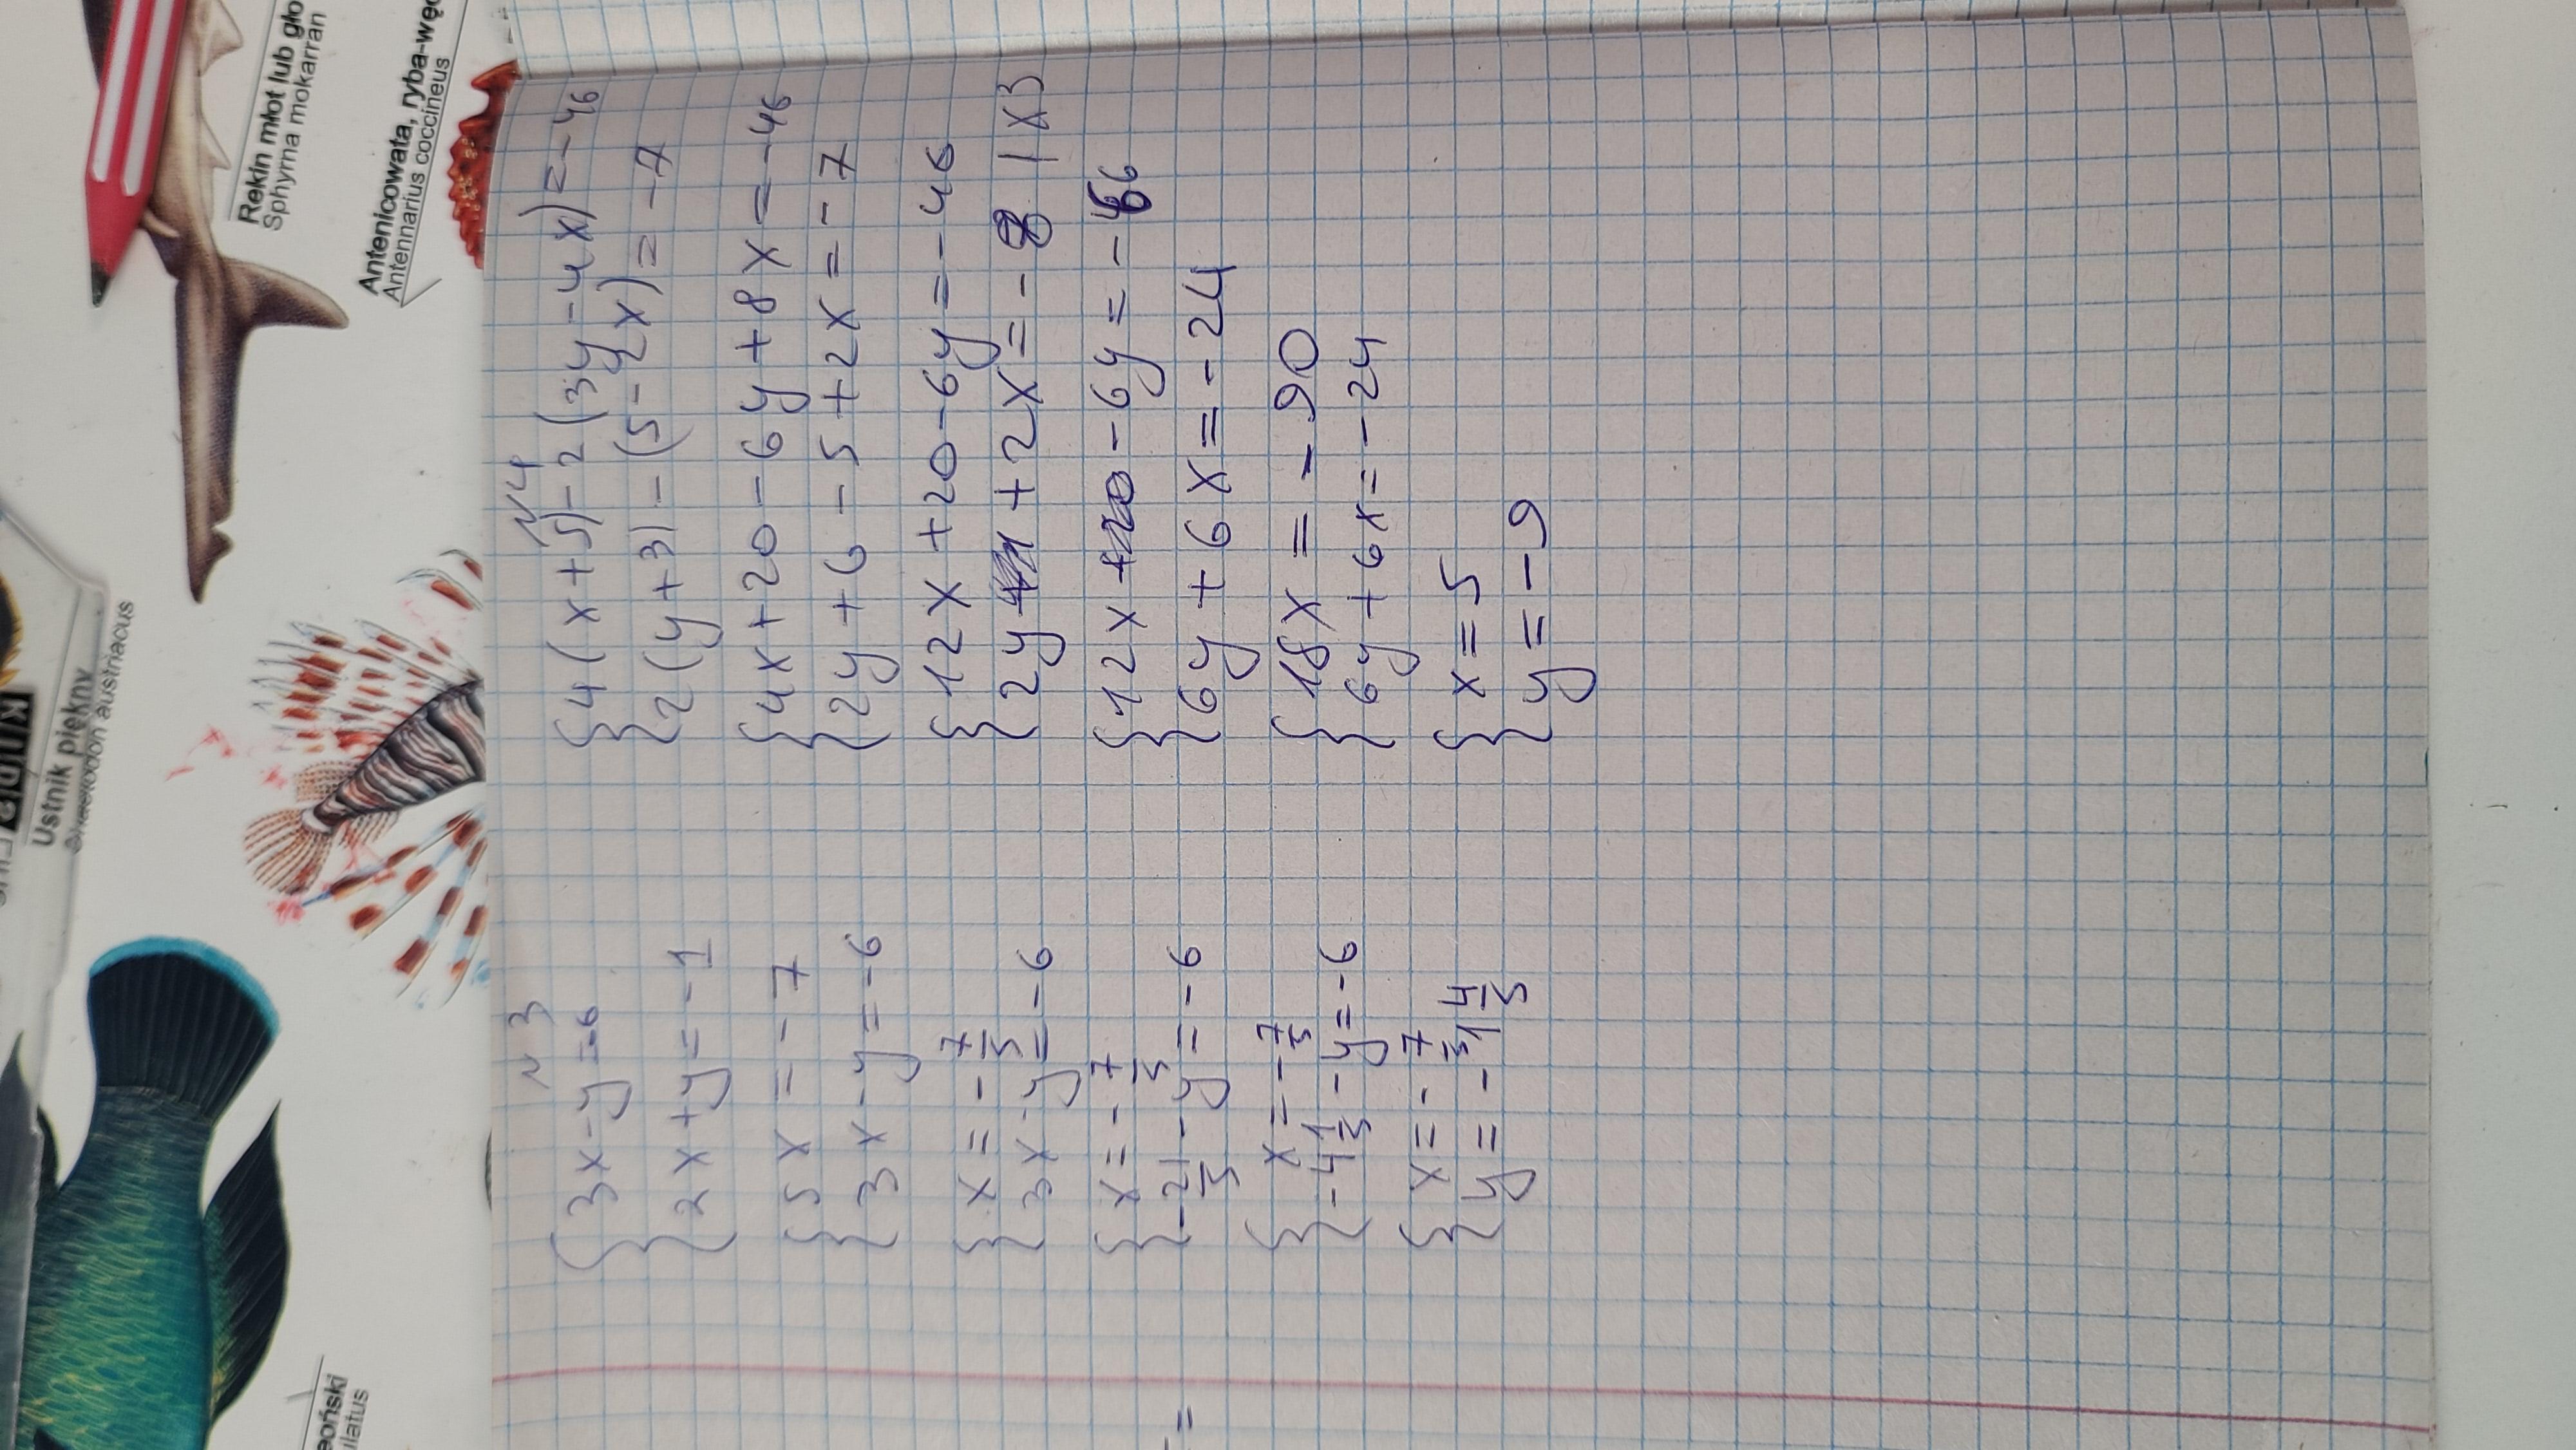 Rekin młot lub gło
Sphyrna mokarran
Antenicowata, ryba-węd
Antennarius coccineus
Ustnik piękny
Chaetodon austriacus
eoński
ulatus
N3
3x-y=-6
2x+y=-1
5x=-7
3x-y=-6
x=-7/5
3x-y=-6
x=-7/5
-21/5-y=-6
x=-7/5
-4 1/5-y=-6
x=-7/5
y=-1 4/5
N4
4(x+5)-2(3y-4x)=-46
2(y+3)-(5-2x)=-7
4x+20-6y+8x=-46
2y+6-5+2x=-7
12x+20-6y=-46
2y+2x=-8 |x3
12x-6y=-66
6y+6x=-24
18x=-90
6y+6x=-24
x=5
y=-9
=